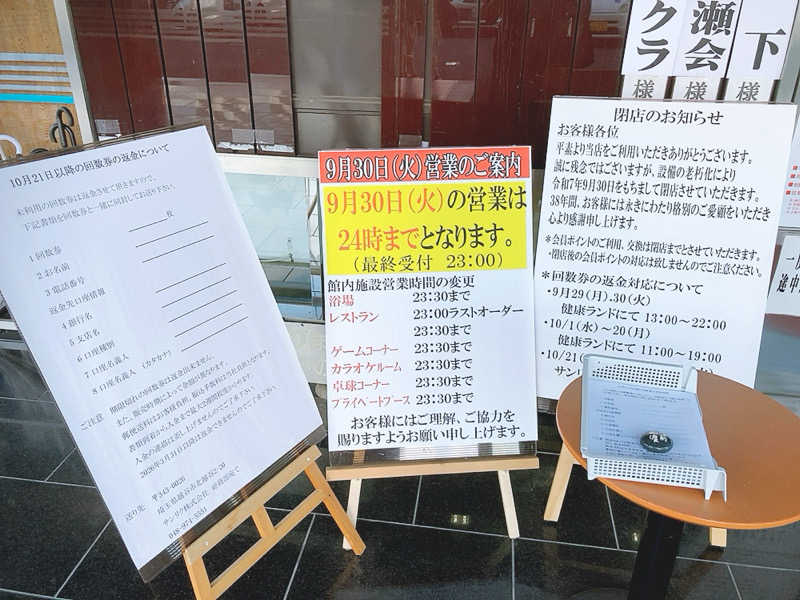 10月21日以降の回数券の返金について
未利用の回数券は返金させて頂きますので、
下記書類を回数券と一緒に同封してお送り下さい。
枚
1 回数券
2 お名前
3 電話番号
返金先口座情報
4 銀行名
5 支店名
6 口座種別
7 口座名義人
8 口座名義人(カタカナ)
ご注意 期限切れの回数券は返金出来ません。
また、販売時期によって金額が異なります。
郵便送料はお客様負担、振込手数料は当社負担とします。
書類到着から入金まで
入金の連絡は致しませんのでご了承下さい。
2026年3月31日以降は返金できませんのでご了承下さい。
送り先 〒343-0026
埼玉県越谷市北越谷2-20
サンリク株式会社
048-974-5551
9月30日(火)営業のご案内
9月30日(火)の営業は
24時までとなります。
(最終受付 23:00)
館内施設営業時間の変更
浴場 23:30まで
レストラン 23:00ラストオーダー
23:30まで
ゲームコーナー 23:30まで
カラオケルーム 23:30まで
卓球コーナー 23:30まで
プライベートブース 23:30まで
お客様にはご理解、ご協力を
賜りますようお願い申し上げます。
クラ様
瀬会様
下様
閉店のお知らせ
お客様各位
平素より当店をご利用いただきありがとうございます。
誠に残念ではございますが、設備の老朽化により
令和7年9月30日をもちまして閉店させていただきます。
38年間、お客様には永きにわたり格別のご愛顧をいただき
心より感謝申し上げます。
*会員ポイントのご利用、交換は閉店までとさせていただきます。
・閉店後の会員ポイントの対応は致しませんのでご注意ください。
*回数券の返金対応について
・9月29(月).30(火)
健康ランドにて 13:00～22:00
・10/1(水)～20(月)
健康ランドにて 11:00～19:00
・10/21(
サンリ